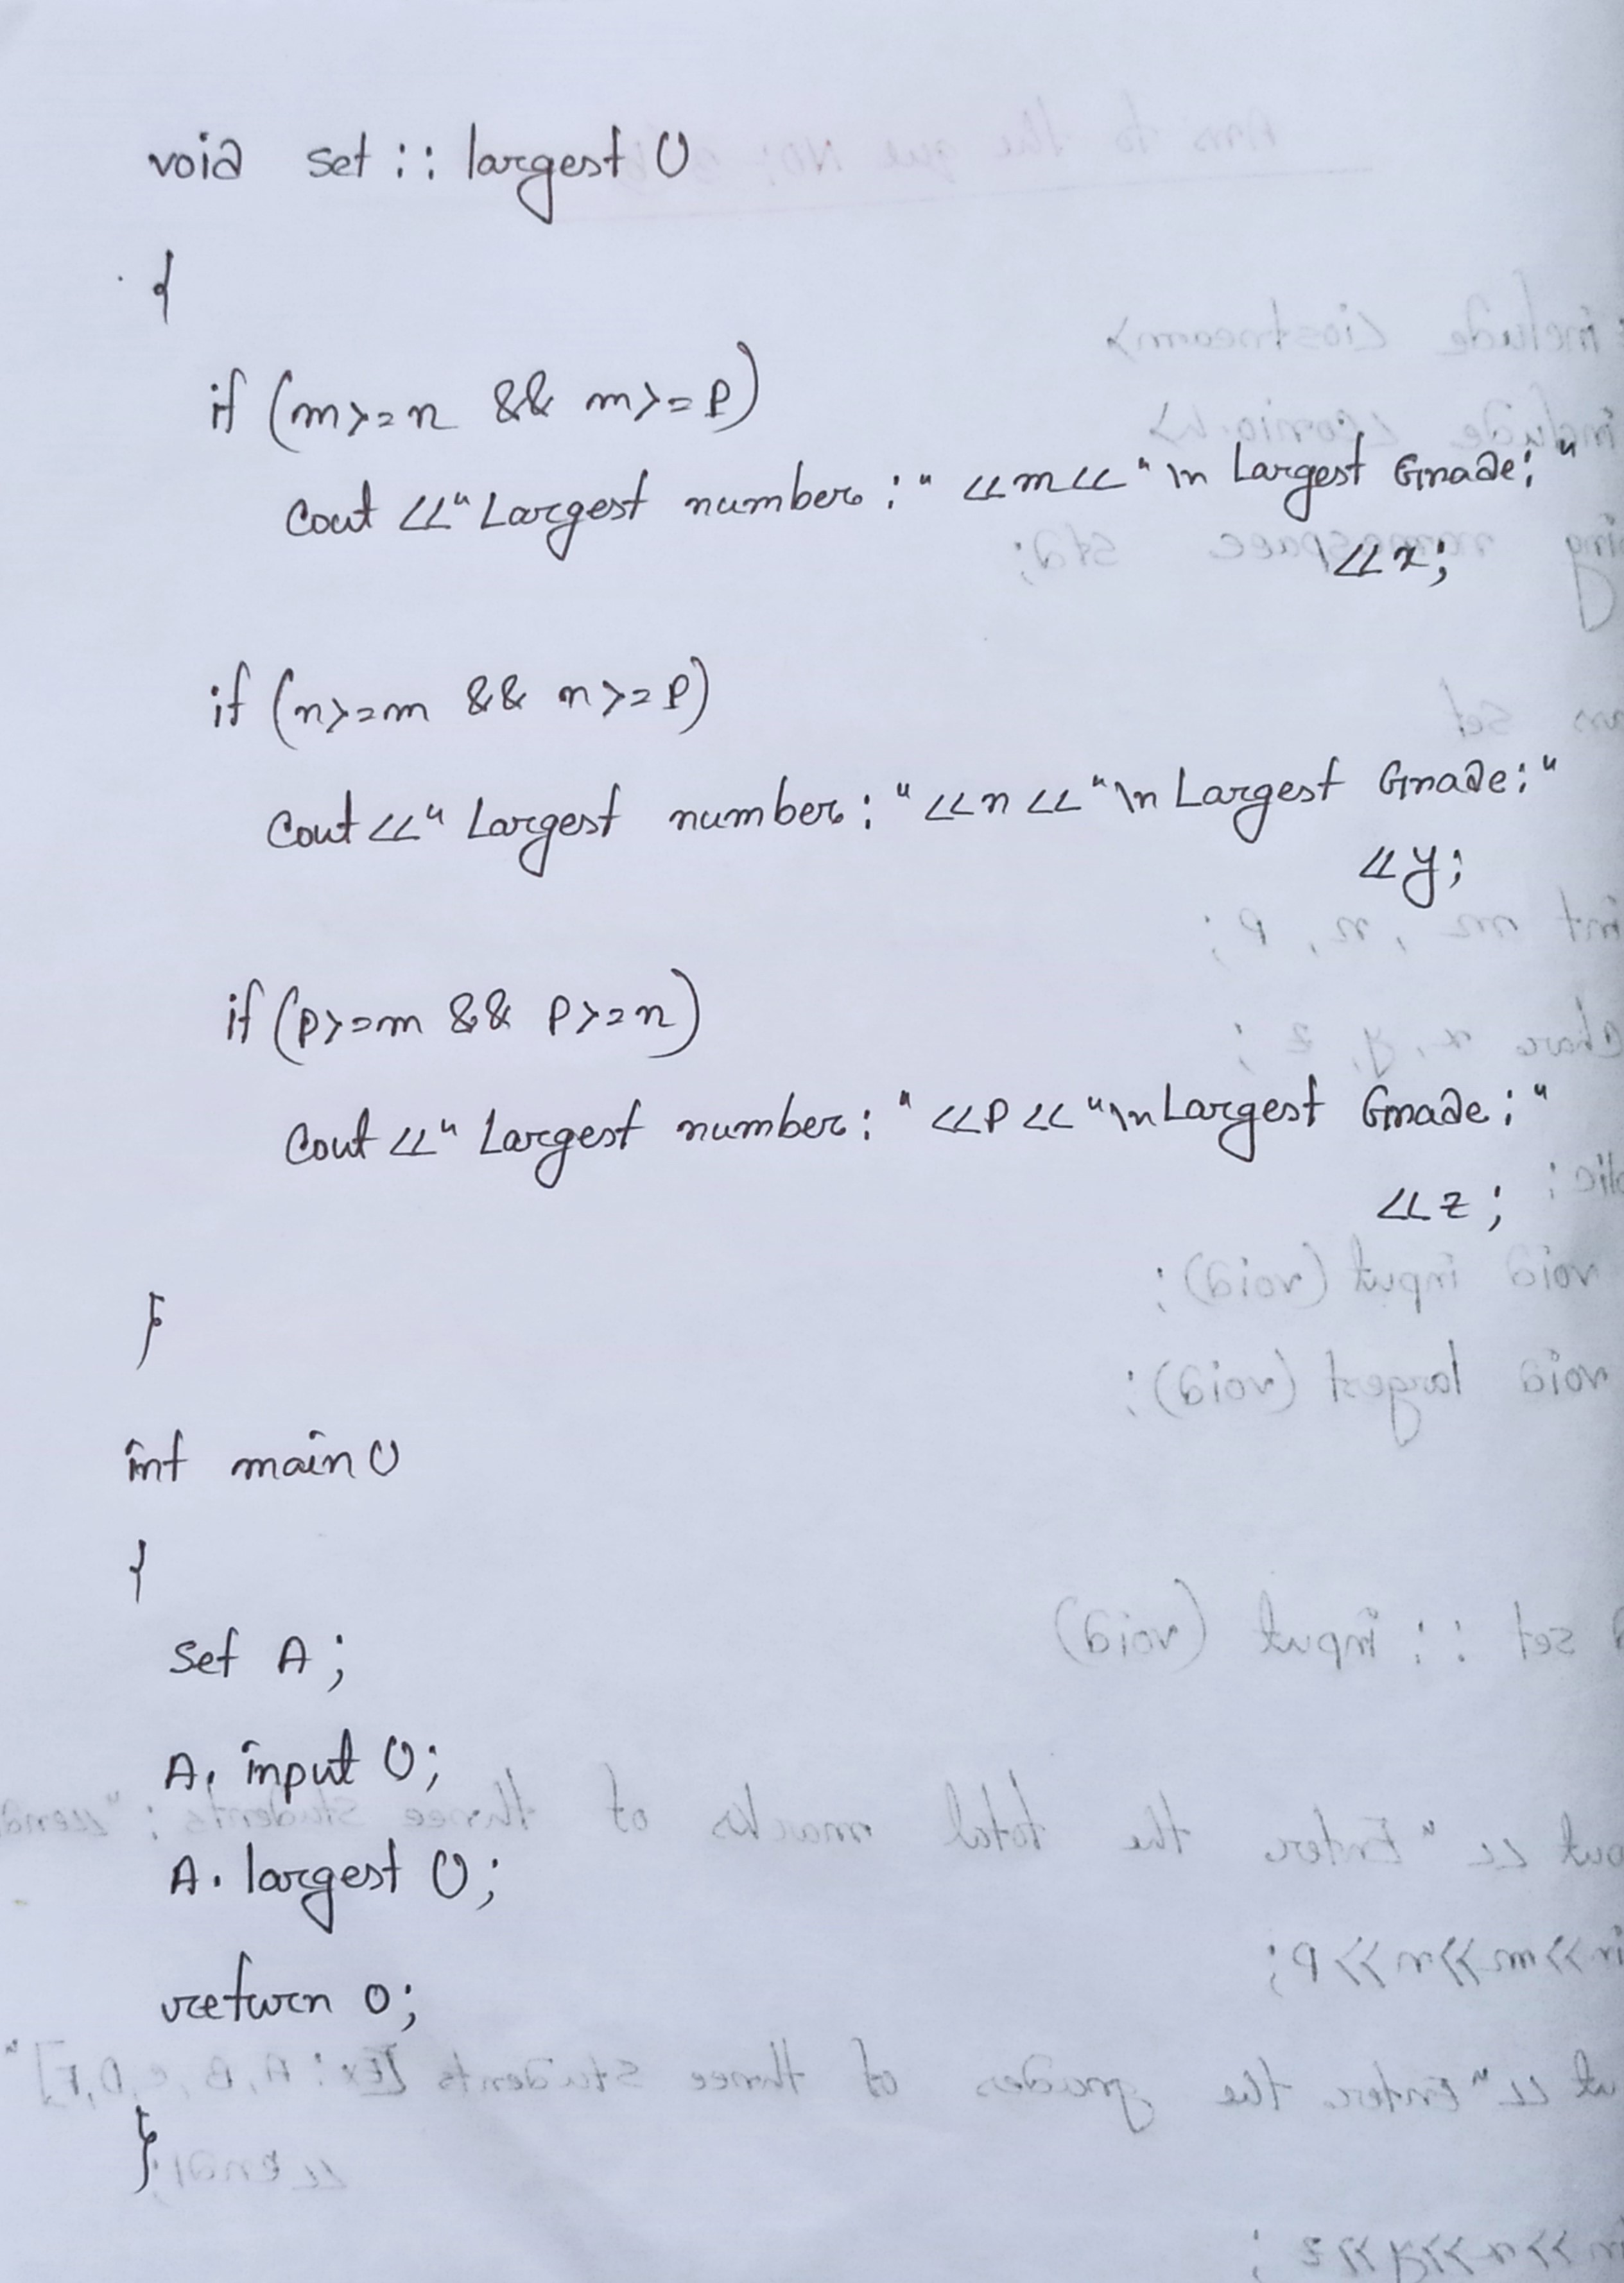 void set :: largest ()
{
if (m>=n && m>=p)
cout <<"Largest number:" <<m<<"\n Largest Grade:"
<<x;
if (n>=m && n>=p)
cout <<"Largest number:" <<n<<"\n Largest Grade:"
<<y;
if (p>=m && p>=n)
cout <<"Largest number:" <<p<<"\n Largest Grade:"
<<z;
}
int main ()
{
set A;
A. input ();
A. largest ();
return 0;
}